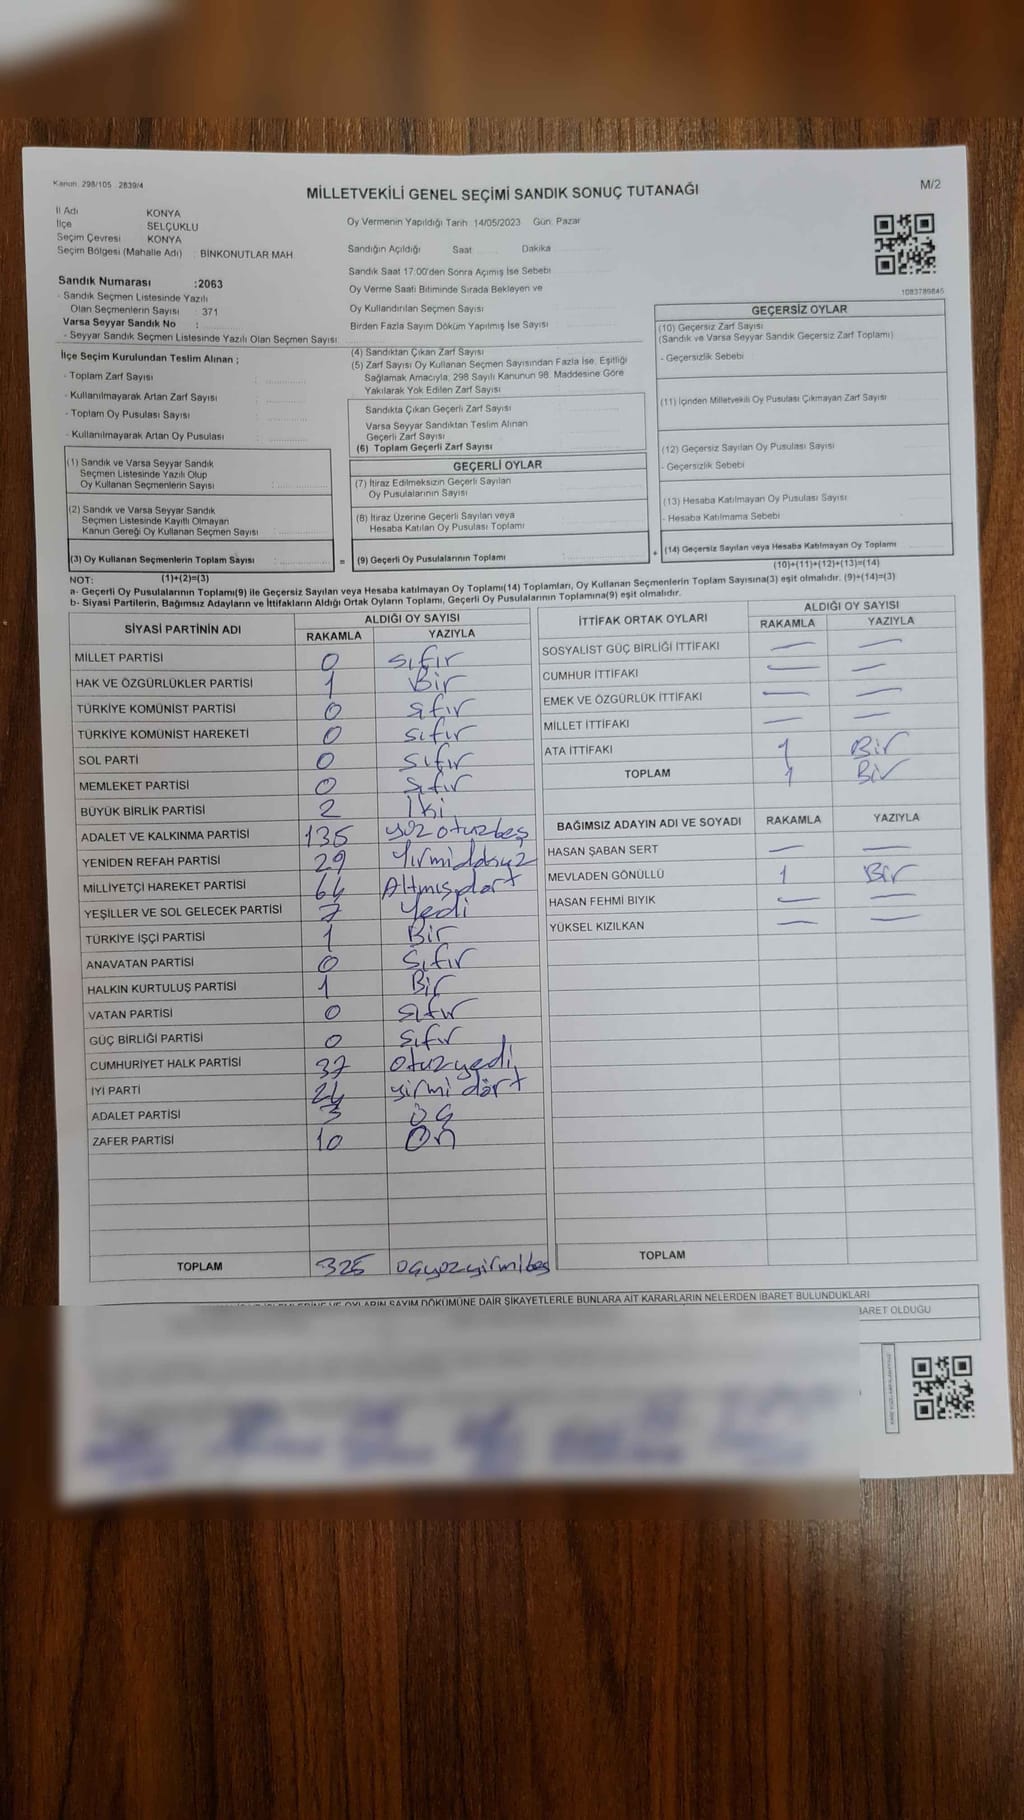 Kanun 298/105 2839/4
MİLLETVEKİLİ GENEL SEÇİMİ SANDIK SONUÇ TUTANAĞI
M/2
İl Adı KONYA
İlçe SELÇUKLU
Seçim Çevresi KONYA
Seçim Bölgesi (Mahalle Adı) : BİNKONUTLAR MAH.
Oy Vermenin Yapıldığı Tarih :14/05/2023 Gün: Pazar
Sandığın Açıldığı Saat Dakika
Sandık Saat 17:00'den Sonra Açımış İse Sebebi
Oy Verme Saati Bitiminde Sırada Bekleyen ve
Oy Kullandırılan Seçmen Sayısı
Birden Fazla Sayım Döküm Yapılmış İse Sayısı
1083789845
Sandık Numarası :2063
- Sandık Seçmen Listesinde Yazılı
Olan Seçmenlerin Sayısı : 371
Varsa Seyyar Sandık No :
- Seyyar Sandık Seçmen Listesinde Yazılı Olan Seçmen Sayısı:
İlçe Seçim Kurulundan Teslim Alınan ;
- Toplam Zarf Sayısı :
- Kullanılmayarak Artan Zarf Sayısı :
- Toplam Oy Pusulası Sayısı :
- Kullanılmayarak Artan Oy Pusulası :
(1) Sandık ve Varsa Seyyar Sandık
Seçmen Listesinde Yazılı Olup
Oy Kullanan Seçmenlerin Sayısı :
(2) Sandık ve Varsa Seyyar Sandık
Seçmen Listesinde Kayıtlı Olmayan
Kanun Gereği Oy Kullanan Seçmen Sayısı :
(3) Oy Kullanan Seçmenlerin Toplam Sayısı :
(1)+(2)=(3)
(4) Sandıktan Çıkan Zarf Sayısı
(5) Zarf Sayısı Oy Kullanan Seçmen Sayısından Fazla İse, Eşitliği
Sağlamak Amacıyla, 298 Sayılı Kanunun 98. Maddesine Göre
Yakılarak Yok Edilen Zarf Sayısı
Sandıkta Çıkan Geçerli Zarf Sayısı
Varsa Seyyar Sandıktan Teslim Alınan
Geçerli Zarf Sayısı
(6) Toplam Geçerli Zarf Sayısı
GEÇERLİ OYLAR
(7) İtiraz Edilmeksizin Geçerli Sayılan
Oy Pusulalarının Sayısı
(8) İtiraz Üzerine Geçerli Sayılan veya
Hesaba Katılan Oy Pusulası Toplamı
= (9) Geçerli Oy Pusulalarının Toplamı
GEÇERSİZ OYLAR
(10) Geçersiz Zarf Sayısı
(Sandık ve Varsa Seyyar Sandık Geçersiz Zarf Toplamı)
- Geçersizlik Sebebi
(11) İçinden Milletvekili Oy Pusulası Çıkmayan Zarf Sayısı
(12) Geçersiz Sayılan Oy Pusulası Sayısı
- Geçersizlik Sebebi
(13) Hesaba Katılmayan Oy Pusulası Sayısı
- Hesaba Katılmama Sebebi
+ (14) Geçersiz Sayılan veya Hesaba Katılmayan Oy Toplamı
(10)+(11)+(12)+(13)=(14)
NOT:
a- Geçerli Oy Pusulalarının Toplamı(9) ile Geçersiz Sayılan veya Hesaba katılmayan Oy Toplamı(14) Toplamları, Oy Kullanan Seçmenlerin Toplam Sayısına(3) eşit olmalıdır. (9)+(14)=(3)
b- Siyasi Partilerin, Bağımsız Adayların ve İttifakların Aldığı Ortak Oyların Toplamı, Geçerli Oy Pusulalarının Toplamına(9) eşit olmalıdır.
SİYASİ PARTİNİN ADI ALDIĞI OY SAYISI
RAKAMLA YAZIYLA
MİLLET PARTİSİ 0 sıfır
HAK VE ÖZGÜRLÜKLER PARTİSİ 1 Bir
TÜRKİYE KOMÜNİST PARTİSİ 0 sıfır
TÜRKİYE KOMÜNİST HAREKETİ 0 sıfır
SOL PARTİ 0 sıfır
MEMLEKET PARTİSİ 0 sıfır
BÜYÜK BİRLİK PARTİSİ 2 İki
ADALET VE KALKINMA PARTİSİ 135 yüz otuzbeş
YENİDEN REFAH PARTİSİ 29 Yirmidokuz
MİLLİYETÇİ HAREKET PARTİSİ 64 Altmışdört
YEŞİLLER VE SOL GELECEK PARTİSİ 7 Yedi
TÜRKİYE İŞÇİ PARTİSİ 1 Bir
ANAVATAN PARTİSİ 0 Sıfır
HALKIN KURTULUŞ PARTİSİ 1 Bir
VATAN PARTİSİ 0 sıfır
GÜÇ BİRLİĞİ PARTİSİ 0 sıfır
CUMHURİYET HALK PARTİSİ 37 otuzyedi
İYİ PARTİ 24 yirmi dört
ADALET PARTİSİ 3 üç
ZAFER PARTİSİ 10 On
TOPLAM 325 üçyüzyirmibeş
İTTİFAK ORTAK OYLARI ALDIĞI OY SAYISI
RAKAMLA YAZIYLA
SOSYALİST GÜÇ BİRLİĞİ İTTİFAKI — —
CUMHUR İTTİFAKI — —
EMEK VE ÖZGÜRLÜK İTTİFAKI — —
MİLLET İTTİFAKI — —
ATA İTTİFAKI 1 Bir
TOPLAM 1 Bir
BAĞIMSIZ ADAYIN ADI VE SOYADI RAKAMLA YAZIYLA
HASAN ŞABAN SERT — —
MEVLADEN GÖNÜLLÜ 1 Bir
HASAN FEHMİ BIYIK — —
YÜKSEL KIZILKAN — —
TOPLAM
OYLARIN SAYIM DÖKÜMÜNE DAİR ŞİKAYETLERLE BUNLARA AİT KARARLARIN NELERDEN İBARET BULUNDUKLARI
BARET OLDUĞU